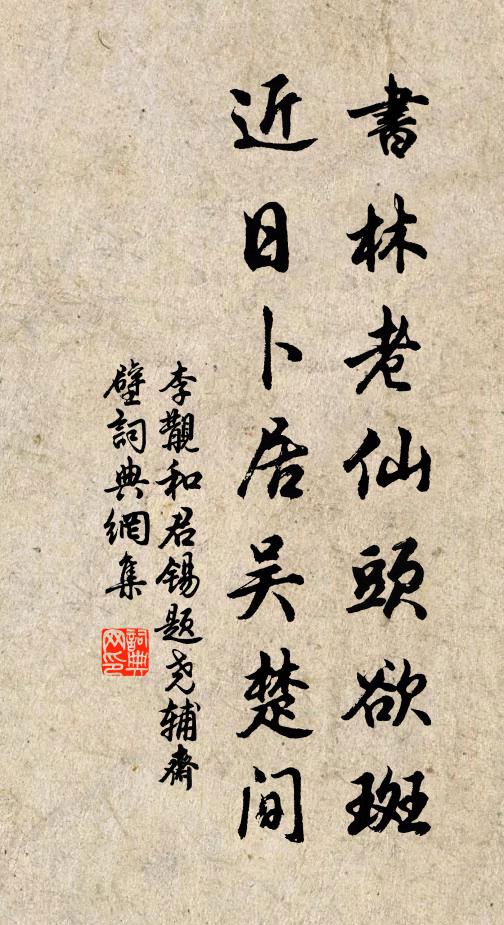 書林老仙頭欲斑
近日卜居吴楚间
李觀和君錫題尧辅齋
壁詞典網集
詞典网印